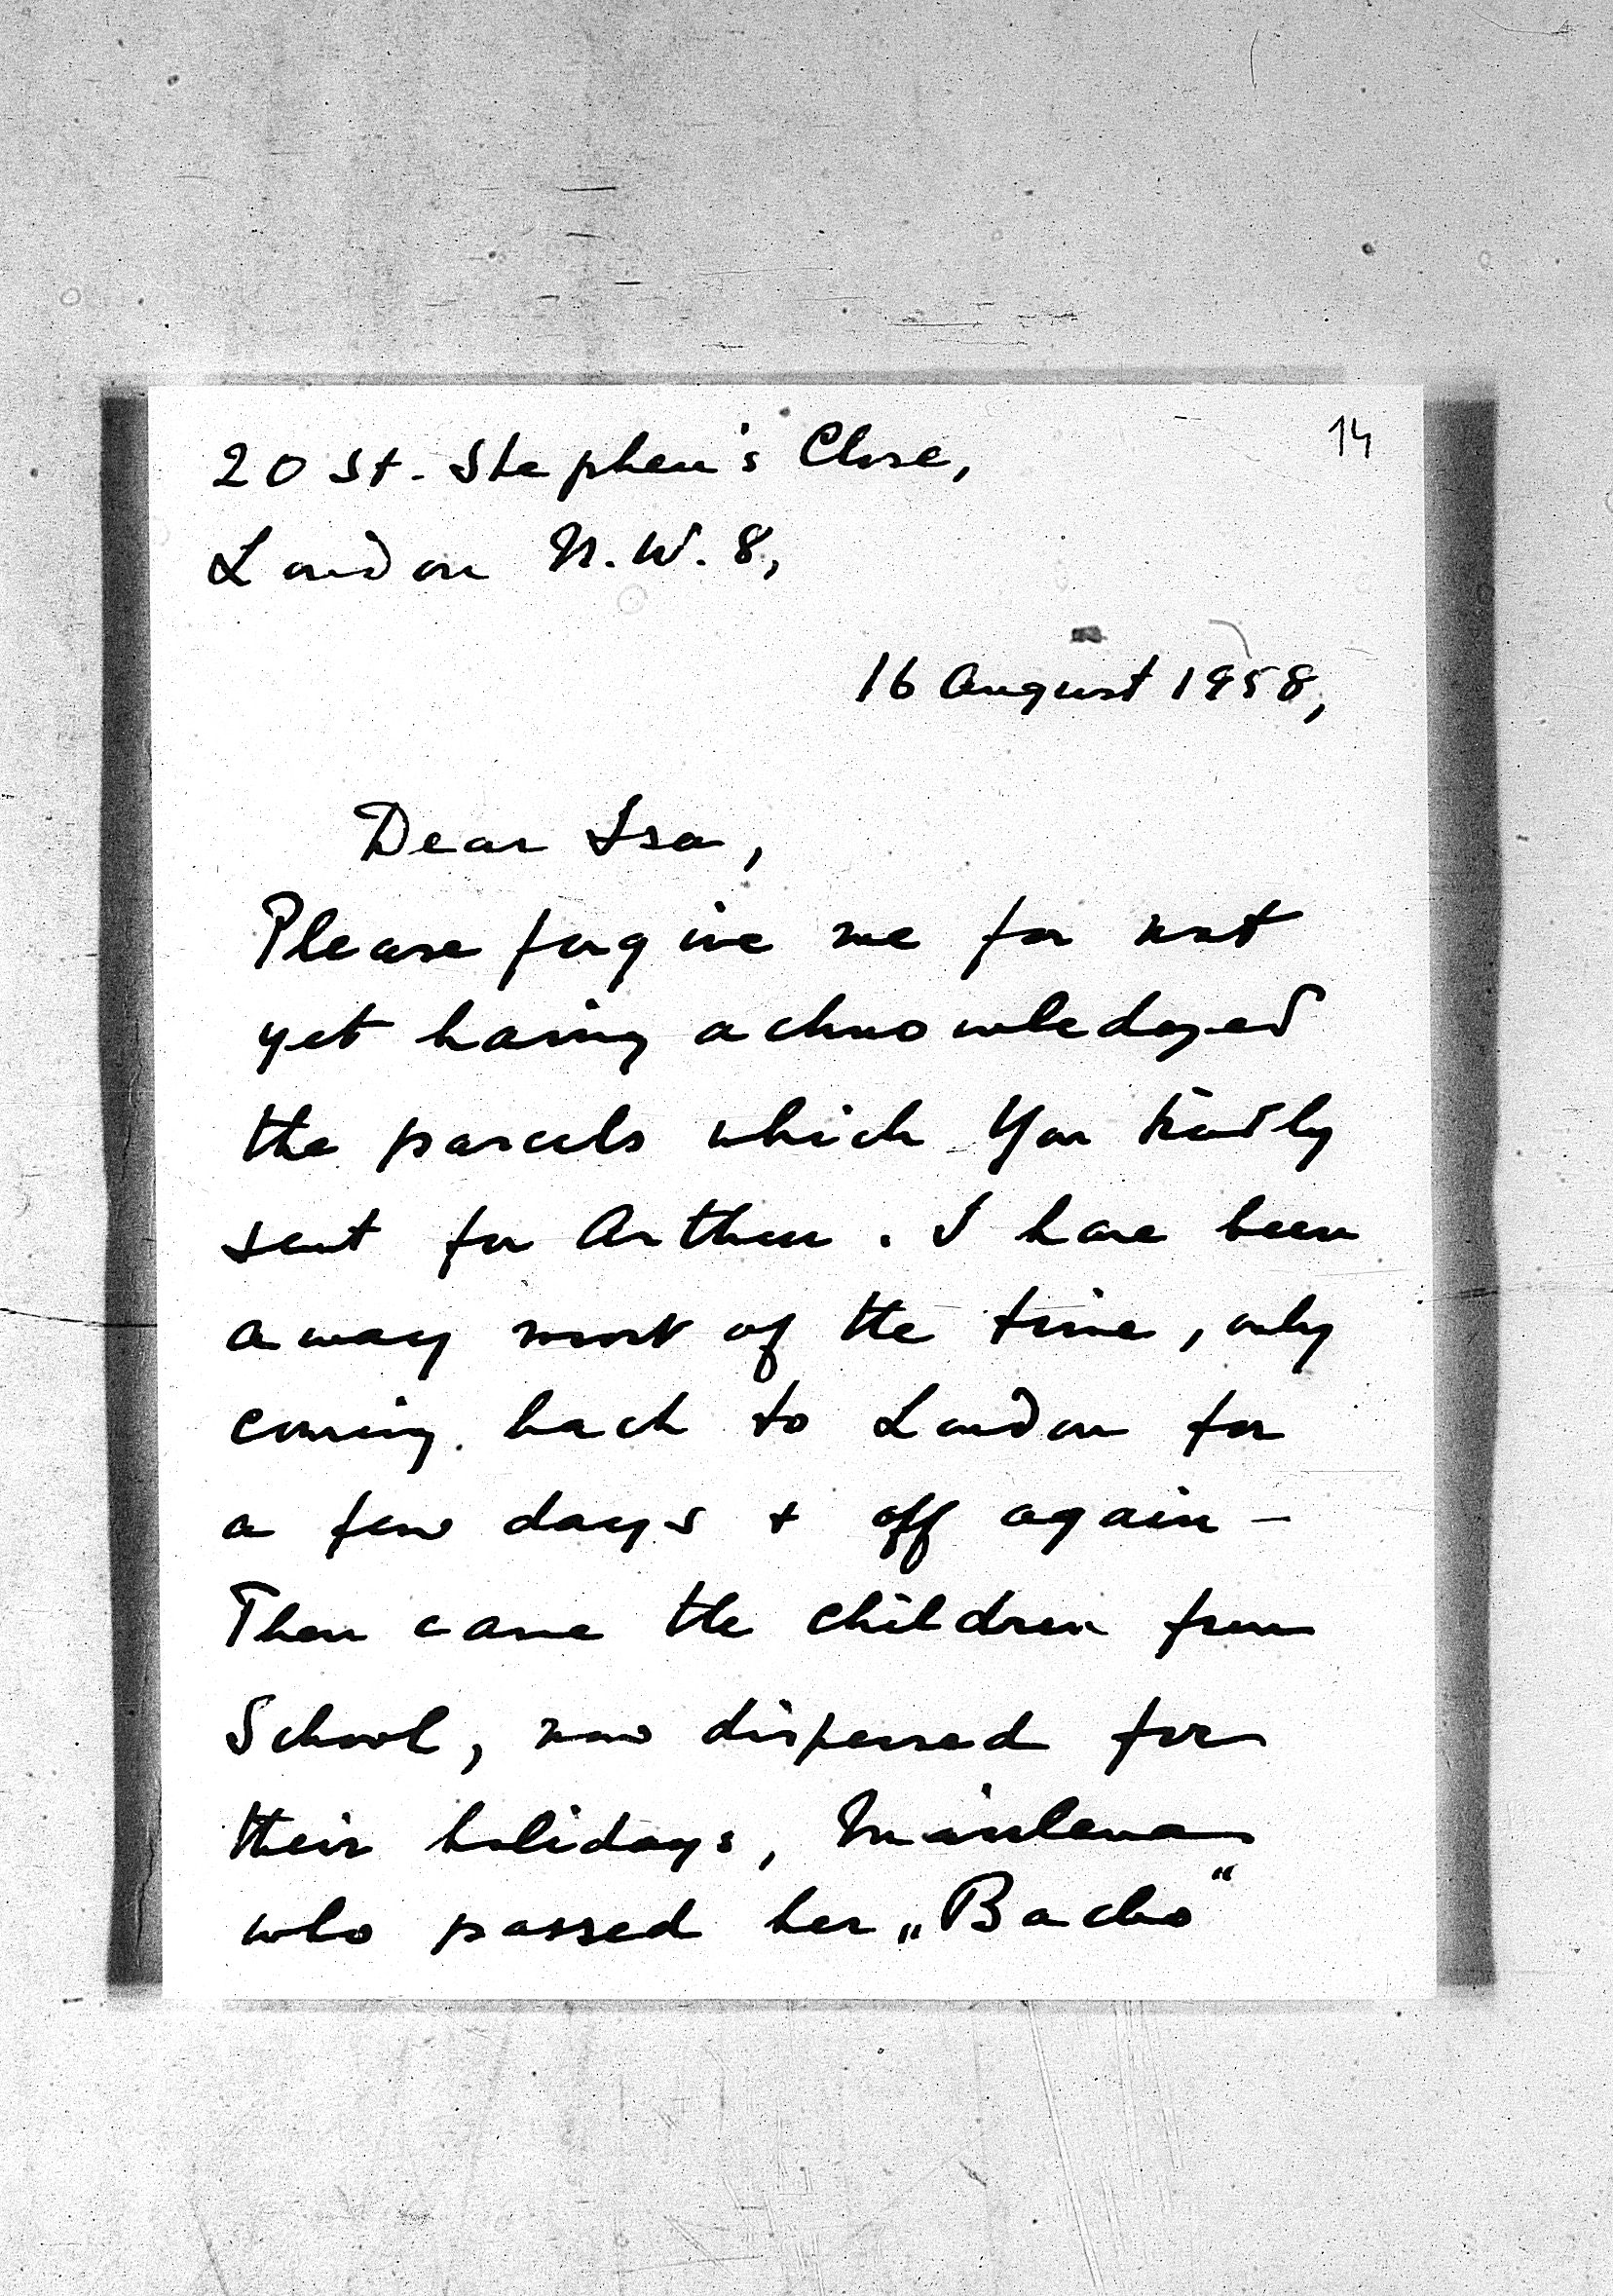 14
20 St. Stephen's Close,
London N.W. 8,
16 August 1958,
Dear Isa,
Please forgive me for not
yet having acknowledged
the parcels which You kindly
sent for Arthur. I have been
away most of the time, only
coming back to London for
a few days + off again -
Then came the children from
School, now dispersed for
their holidays,
who passed her „Bacho“